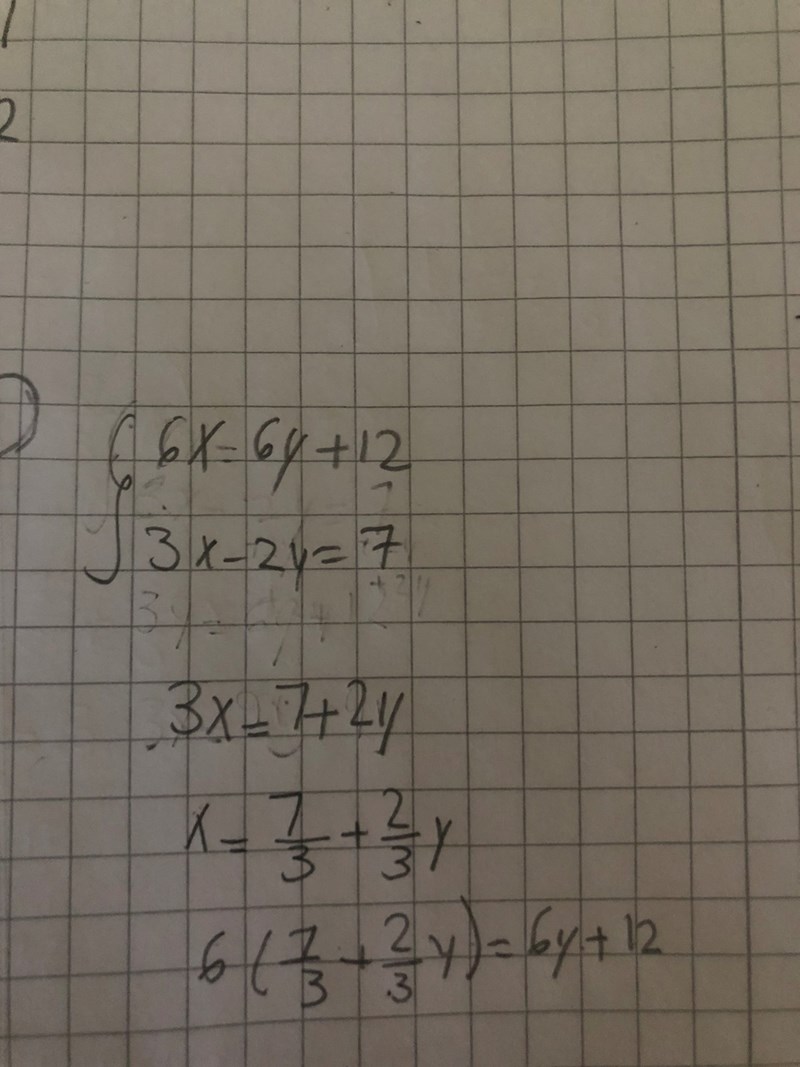 1
2
)
6x = 6y + 12
3x - 2y = 7
3x = 7 + 2y
x = 7/3 + 2/3 y
6 (7/3 + 2/3 y) = 6y + 12